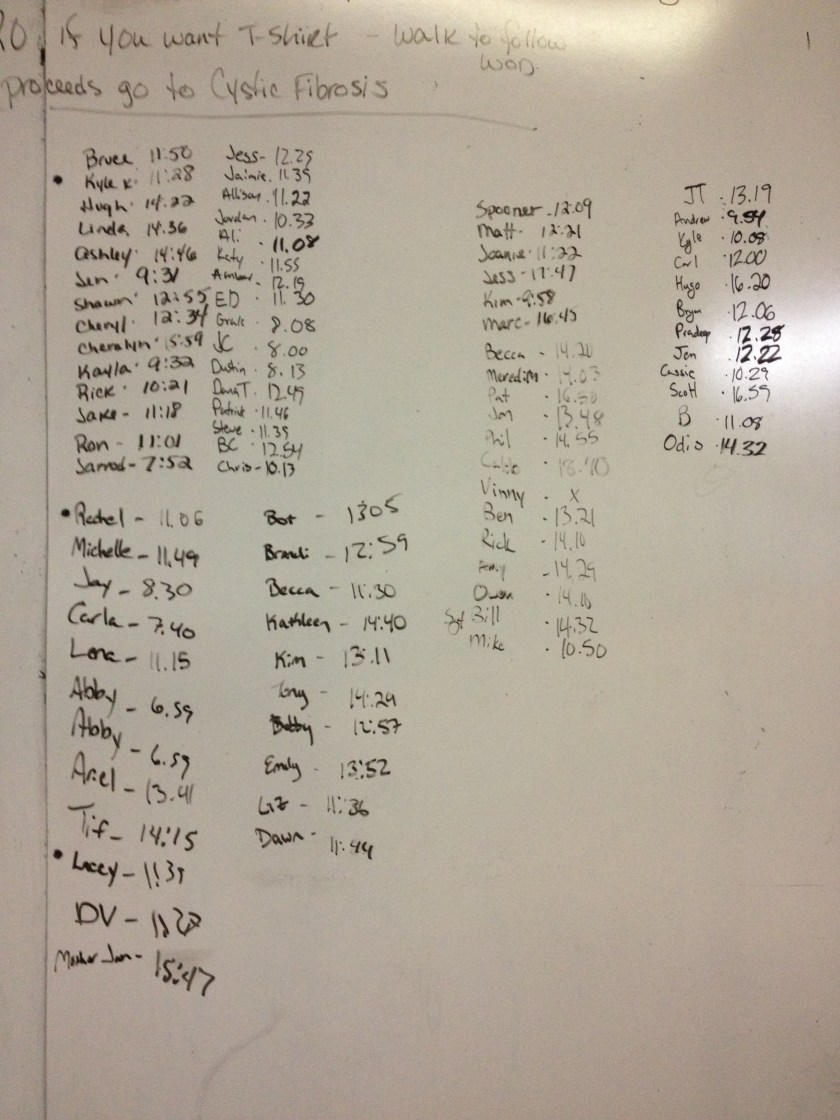 If you want T-Shirt - Walk to follow
WOD
proceeds go to Cystic Fibrosis
Bruce 11:50
Kyle K. 11:28
Hugh. 14.22
Linda 14.36
Ashley. 14:46
Jen. 9:31
Shawn. 12:55
Cheryl. 12:34
Cheralyn. 15:59
Kayla. 9:32
Rick. 10:21
Jake - 11:18
Ron - 11:01
Jarrod - 7:52
Jess - 12.25
Jaimie. 11.39
Allison. 11.22
Jordan. 10.33
Ali. 11.08
Katy. 11.55
Amber. 12.19
ED. 11.30
8.08
JC. 8.00
Dustin. 8.13
Dana T. 12.49
Patrick. 11.46
Steve. 11.39
BC. 12.54
Chris - 10.13
Rachel - 11.06
Michelle - 11.49
Jay - 8.30
Carla - 7.40
Lena - 11.15
Abby - 6.59
Abby - 6.59
Ariel - 13.41
Tif - 14:15
Lacey - 11:39
DV -
Jan - 15:47
- 1305
Brandi - 12:59
Becca - 11:30
Kathleen - 14:40
Kim - 13:11
Tony - 14:29
Bobby - 12:57
Emily - 13:52
Liz - 11:36
Dawn - 11:44
Spooner. 12:09
Matt. 12:21
Joanie. 11:22
Jess - 17:47
Kim - 9:58
Marc - 16:45
Becca - 14.20
Meredith - 14.03
Pat - 16.50
Jon - 13.48
Phil - 14.55
Caleb - 18.40
Vinny. X
Ben. 13.21
Rick. 14.10
Amy - 14.29
Owen. 14.10
Sgt Bill. 14.32
Mike. 10.50
JT. 13.19
Andrew. 9.54
Kyle. 10.08
Carl. 12.00
Hugo. 16.20
Bryan. 12.06
Pradeep. 12.28
Jen. 12.22
Cassie. 10.29
Scott. 16.59
B. 11.08
Odis. 14.32